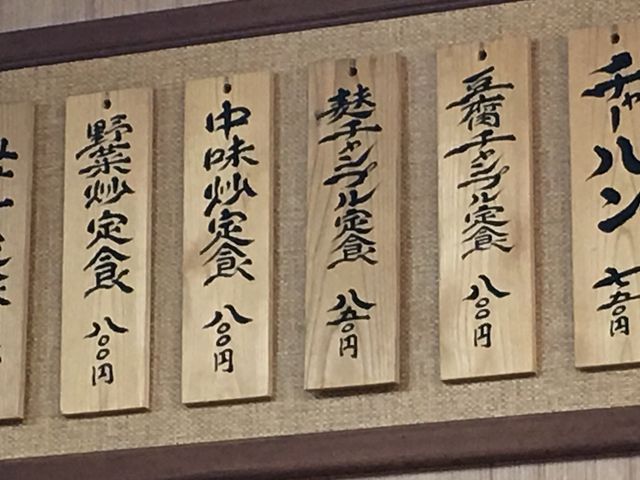 チャーハン 七五〇円
豆腐チャンプル定食 八〇〇円
麩チャンプル定食 八五〇円
中味炒定食 八〇〇円
野菜炒定食 八〇〇円